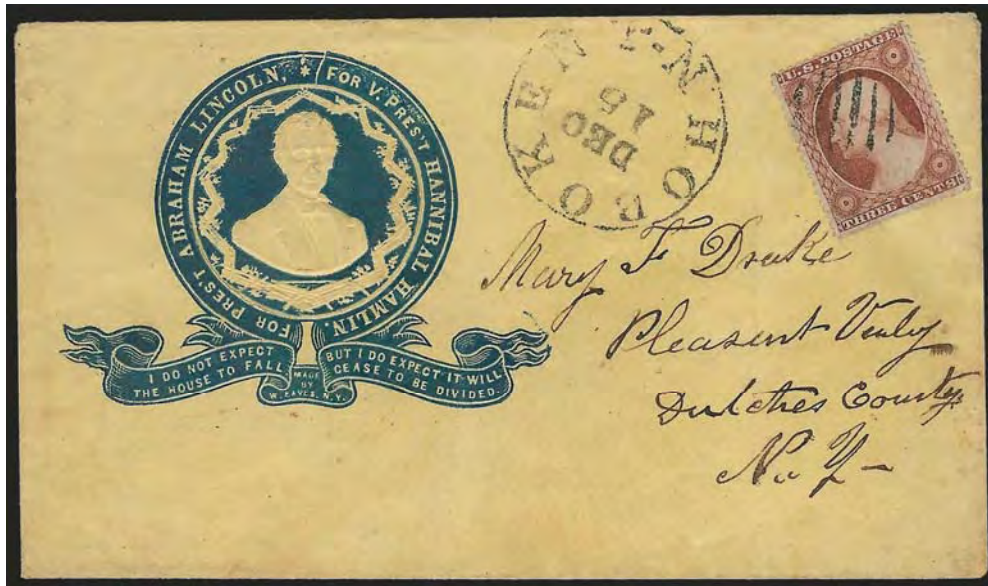 FOR PRES'T ABRAHAM LINCOLN. * FOR V. PRES'T HANNIBAL HAMLIN.
I DO NOT EXPECT
THE HOUSE TO FALL
MADE
BY
W. EAVES, N.Y.
BUT I DO EXPECT IT WILL
CEASE TO BE DIVIDED.
HOBOKEN N.J.
DEC
15
U.S. POSTAGE
THREE CENTS
Mary F Drake
Pleasent Vally
Dutches County
N. Y -